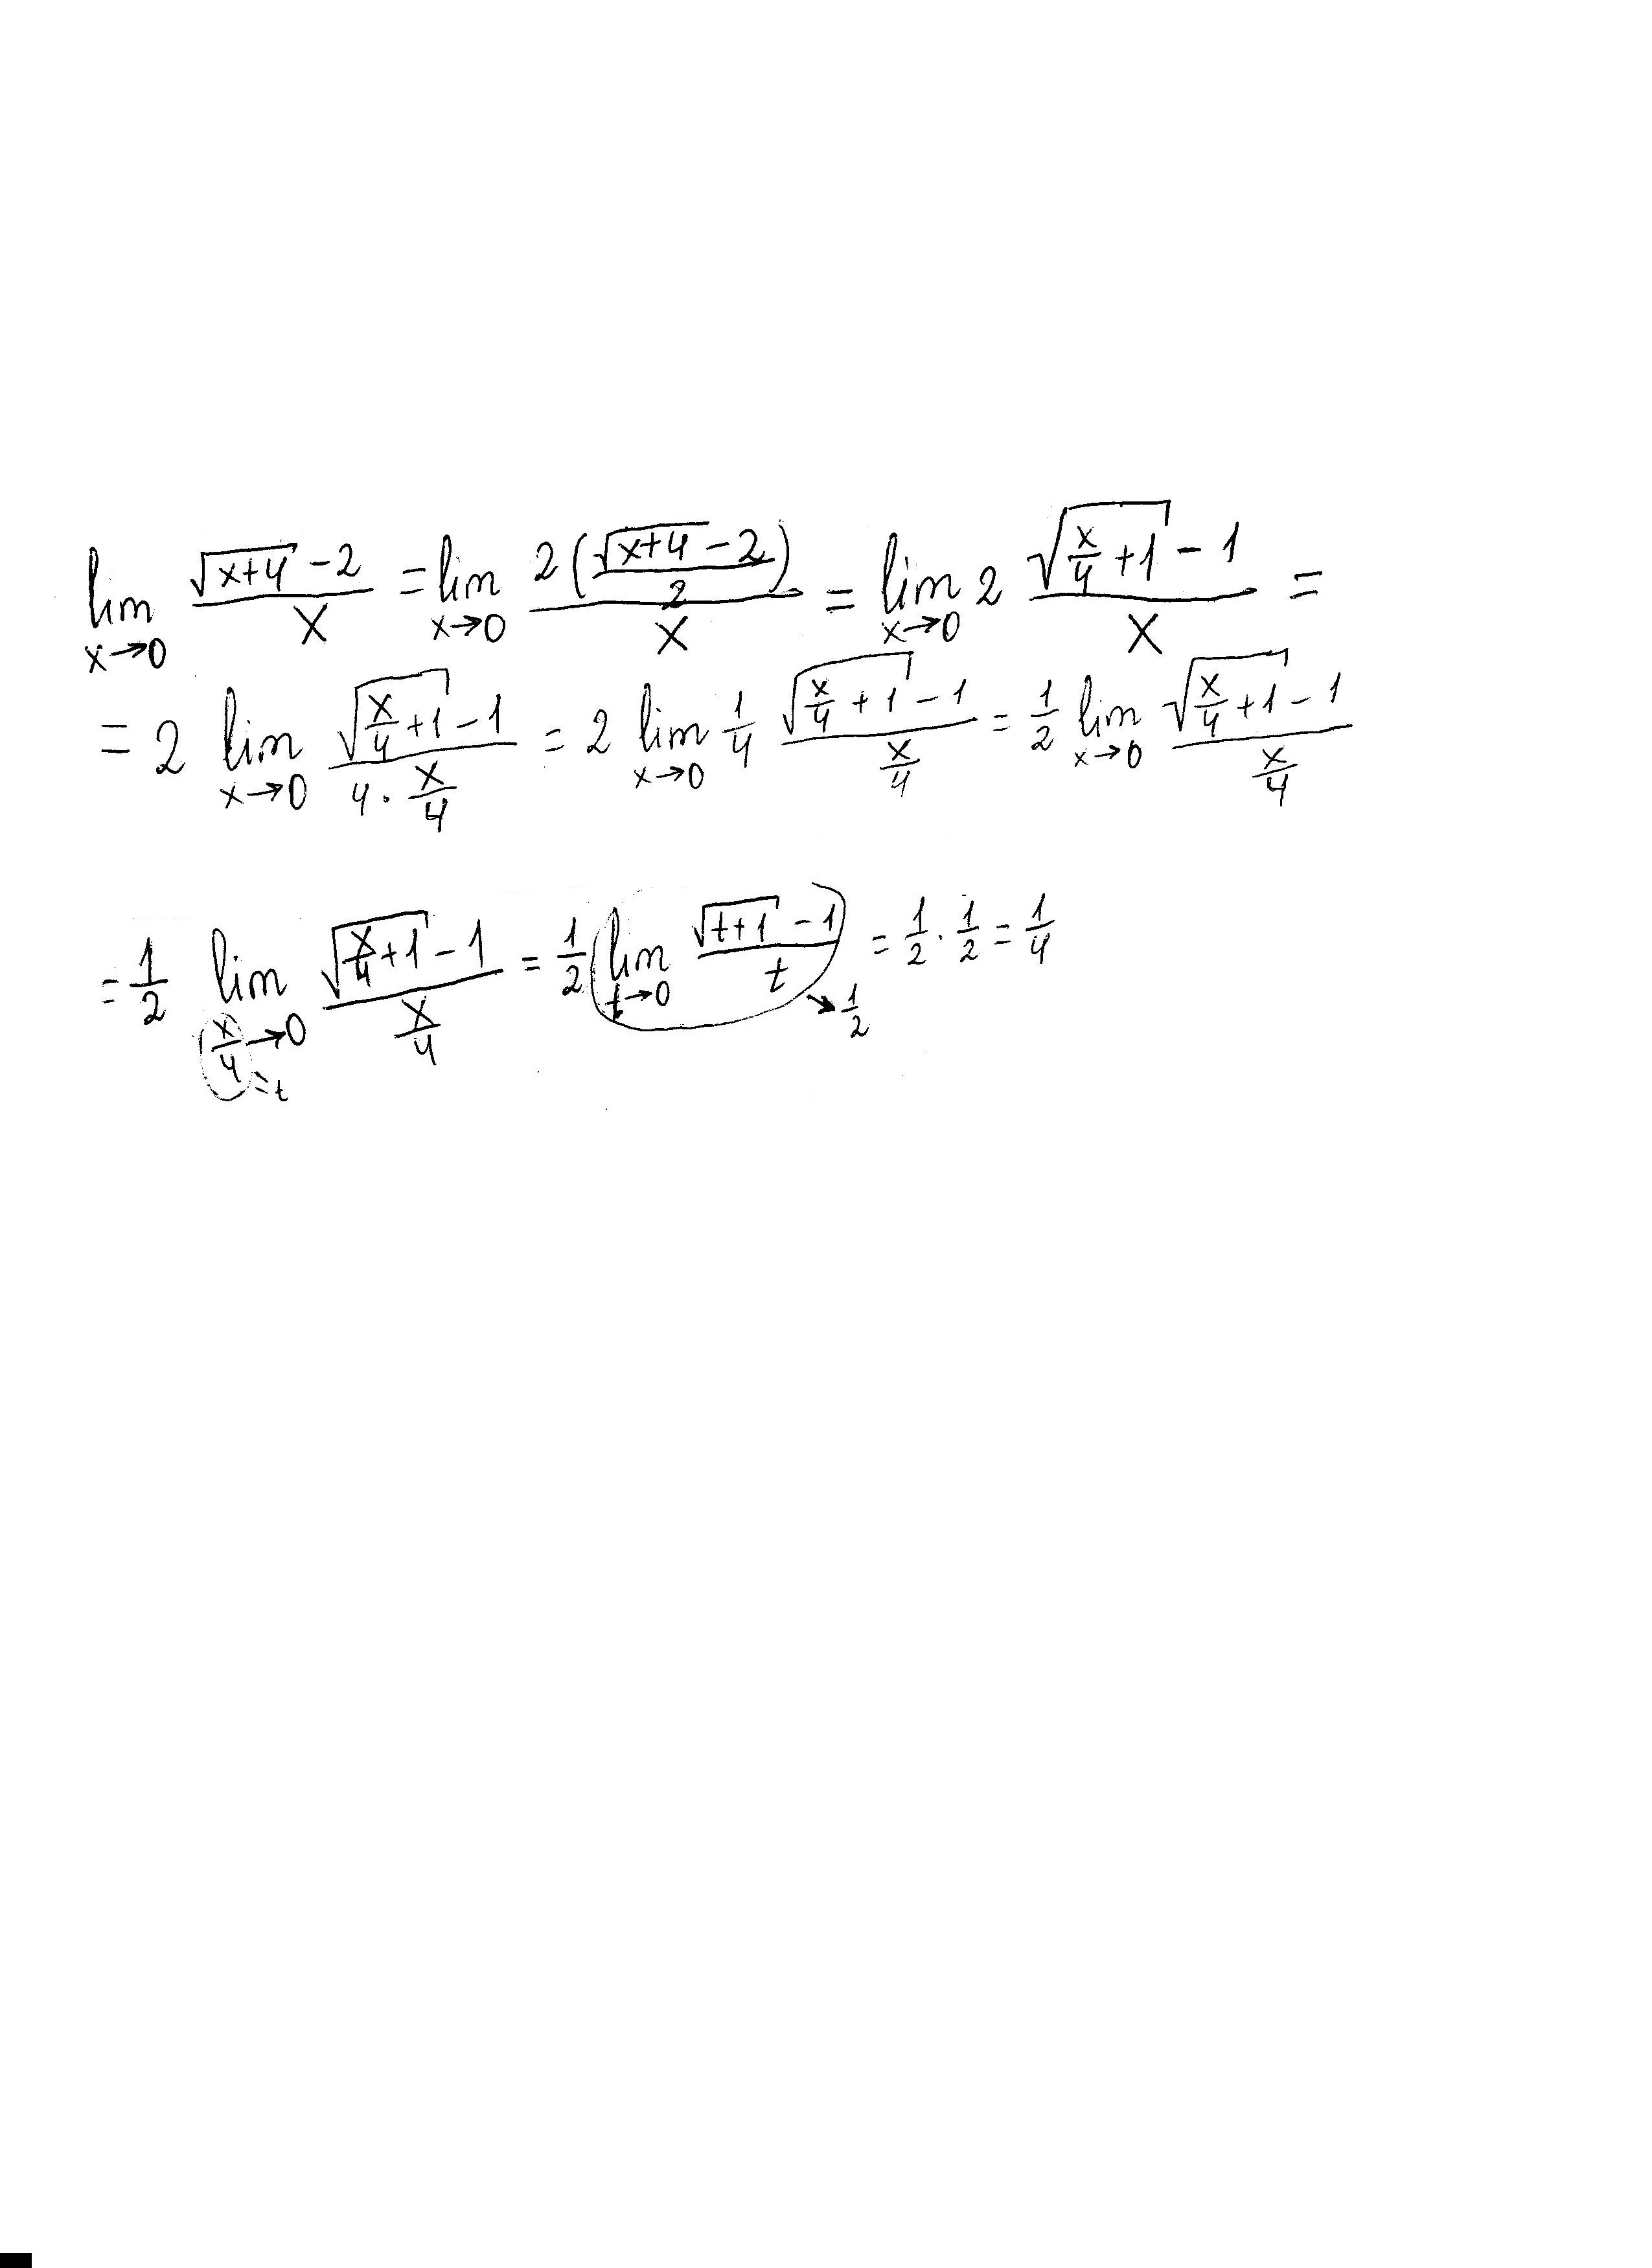 lim x→0 (√(x+4) - 2)/x = lim x→0 2((√(x+4) - 2)/2)/x = lim x→0 2 (√(x/4 + 1) - 1)/x =
= 2 lim x→0 (√(x/4 + 1) - 1)/(4 · x/4) = 2 lim x→0 1/4 (√(x/4 + 1) - 1)/(x/4) = 1/2 lim x→0 (√(x/4 + 1) - 1)/(x/4)
= 1/2 lim x/4→0 (√(x/4 + 1) - 1)/(x/4) = 1/2 lim t→0 (√(t+1) - 1)/t = 1/2 · 1/2 = 1/4
= t
↘ 1/2